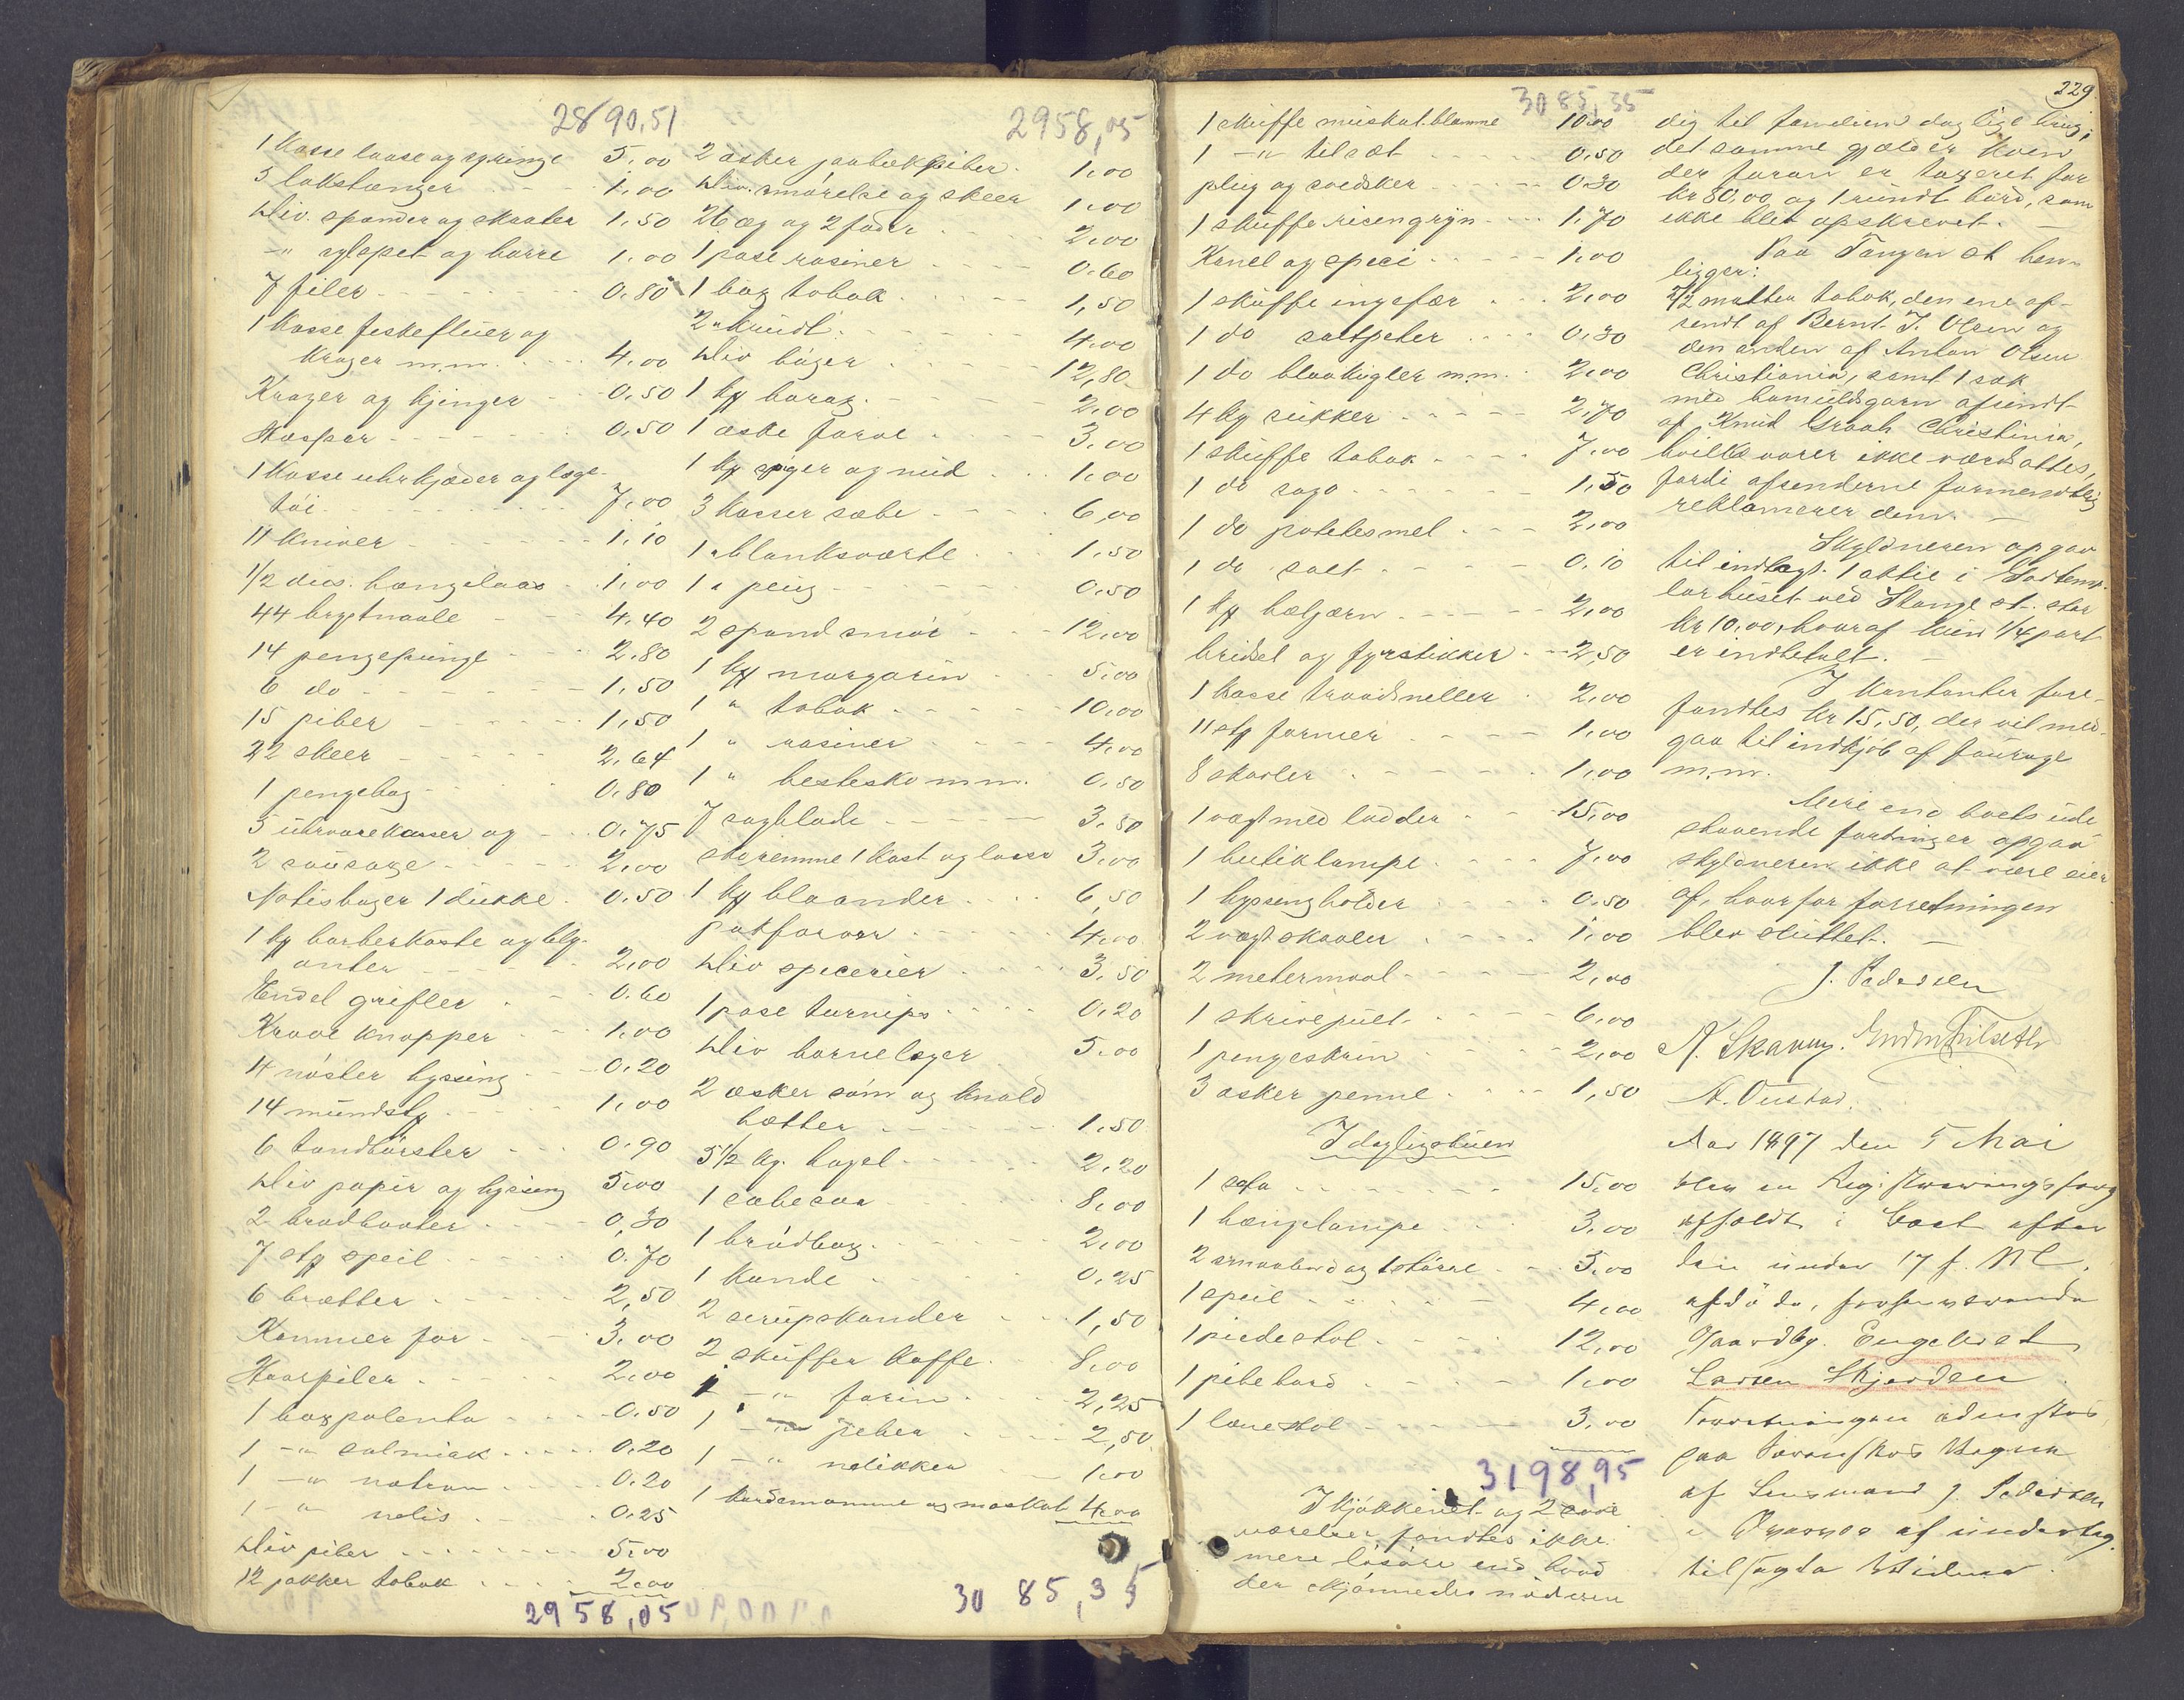 2890,51
1 Kasse laase og springe 5,00
5 lokstænger 1,00
Div. spander og skaaler 1,50
-"- sylspet og borre 1,00
7 filer 0,80
1 Kasse feskefluer og
Kroger m.m. 4,00
Kroger og kjinger 0,50
Hasper 0,50
1 Kasse uhrkjæder og lege
töi 7,00
11 Kniver 1,10
1/2 dus. hængelaas 1,00
44 brystnaale 4,40
14 pengepunge 2,80
6 do 1,50
15 piber 1,50
22 skeer 2,64
1 pengebog 0,80
5 uhrværekasser og 0,75
2 sausage 2,00
Notisbøger 1 dukke 0,50
1 kg barberkoste og bly-
anter 2,00
Endel grifler 0,60
Krave knapper 1,00
4 nöster hyssing 0,20
14 mundstk 1,00
6 tandbörster 0,90
Div papir og hyssing 5,00
2 brodbaater 0,30
7 stk speil 0,70
6 brætter 2,50
Kammer for 3,00
Haarpiler 2,00
1 box polenta 0,50
1 -"- salmiak 0,20
1 -"- natron 0,20
1 -"- nelis 0,25
Div piber 5,00
12 pakker tobak 2,00
2958,05
2958,05
2 æsker jaabækpiber 1,00
Div. smörelse og skeer 1,00
26 æg og 2 fade 2,00
1 pose rosiner 0,60
1 box tobak 1,50
2 " kundt 4,00
Div böger 12,80
1 kg borax 2,00
1 æske farve 3,00
1 kg søger og nud 1,00
3 Kasser sæbe 6,00
1 " blanksværte 1,50
1 " peis 0,50
2 spand smör 12,00
1 kg margarin 5,00
1 " tobak 10,00
1 " rosiner 4,00
1 " hestesko m.m. 0,80
7 sagblade 3,80
skoremme 1 kost og lasse 3,00
1 kg blaander 6,50
potfarver 4,00
Div specerier 3,50
1 pose turnips 0,20
Div barneleger 5,00
2 æsker söm og knald
hætter 1,50
5 1/2 kg. hagel 2,20
1 sæbesaa 8,00
1 brödbox 2,00
1 Kande 0,25
2 sirupskander 1,50
2 skuffer kaffe 8,00
1 -"- farin 2,25
1 -"- peber 2,50
1 -"- nelikken 1,00
1 Kardemomme og maskat 4,00
3085,35
3085,35
1 skuffe muskatblomme 10,00
1 -"- tilsæt 0,50
plug og svedsker 0,30
1 skuffe risengryn 1,70
Kanel og speci 1,00
1 skuffe ingefær 2,00
1 do saltpeter 0,30
1 do blaakugler m.m. 2,00
4 kg sukker 2,70
1 skuffe tobak 7,00
1 do sago 1,50
1 do potetesmel 2,00
1 do salt 0,10
1 kg bæljærn 2,00
bridsel og fyrstikker 2,50
1 kasse traadsneller 2,00
11 stk former 1,00
8 skovler 1,00
1 vægt med lodder 15,00
1 butiklampe 7,00
1 hyssingholder 0,50
2 vægtskaaler 1,00
2 metermaal 2,00
1 skrivepult 6,00
1 pengeskrin 2,00
3 æsker penne 1,50
I dagligstuen
1 sofa 15,00
1 hængelampe 3,00
2 smaabord og 1 större 3,00
1 speil 4,00
1 piedestol 12,00
1 pibebord 1,00
1 lænestol 3,00
3198,95
I kjökkenet og 2 sove
værelser fandtes ikke
mere lösöre end hvad
der skjönnedes nödven
229.
dig til familien daglige brug,
det samme gjælder koen
der foran er taxeret for
kr 80,00 og 1 rundt bord, som
ikke blev opskrevet. —
Paa Tangen st hen-
ligger:
2/2 matten tobak, den ene af-
sendt af Bernt J. Olsen og
den anden af Anton Olsen
Christiania, samt 1 sæk
med bomuldsgarn afsendt
af Knud Graah Christinia,
hvilke varer ikke værdsattes,
fordi afsenderne formendtlig
reklamerer dem. —
Skyldneren opgav
til indlagt 1 aktie i Godtemp-
larhuset ved Stange st. stor
Kr 10,00, hvoraf kun 1/4 part
er indbetalt. —
I Kontanter fore-
fandtes Kr 15,50, der vil med-
gaa til indkjöb af fourage
m.m.
Mere end boets ude
staaende fordringer opgav
skyldneren ikke at være eier
af, hvorfor forretningen
blev sluttet. —
J. Pedersen
N. Skavng.
N. Oustad.
Aar 1897 den 5 Mai
blev en Registreringsforr
afholdt i Boet efter
den under 17 f. M.
afdöde, forhenværende
Gaardbr. Engebret
Larsen Skjerden
Forretningen
paa Vegne
af Lensmand J. Pedersen
i Overvær af undertegn.
tilsagte Vidner